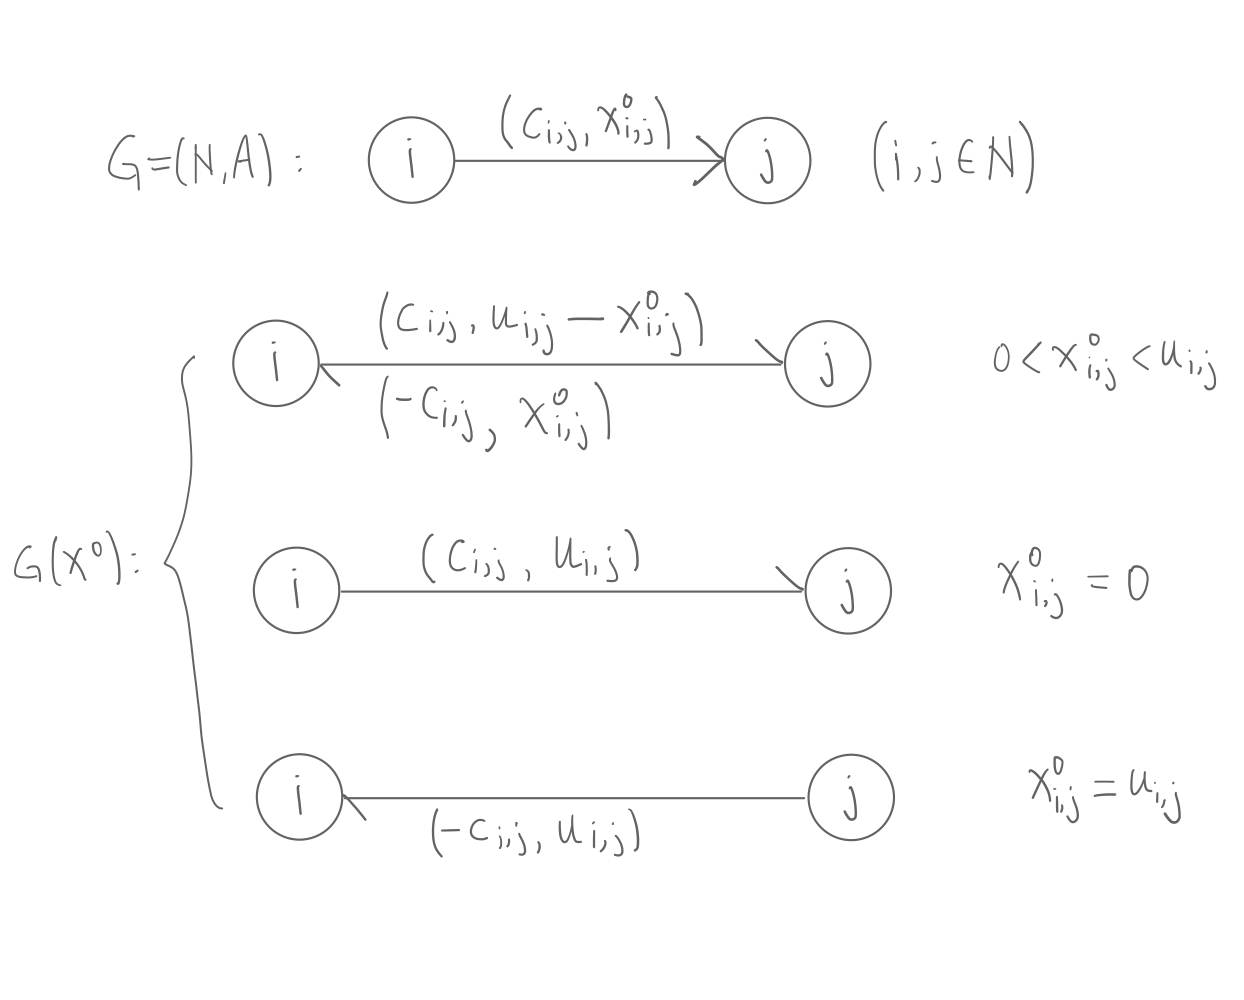 G=(N,A): i (c_{i,j}, x^0_{i,j}) j (i,j∈N)
i (c_{i,j}, u_{i,j} − x^0_{i,j}) j 0<x^0_{i,j}<u_{i,j}
(-c_{i,j}, x^0_{i,j})
G(x^0): i (c_{i,j}, u_{i,j}) j x^0_{i,j} = 0
i (-c_{i,j}, u_{i,j}) j x^0_{i,j} = u_{i,j}